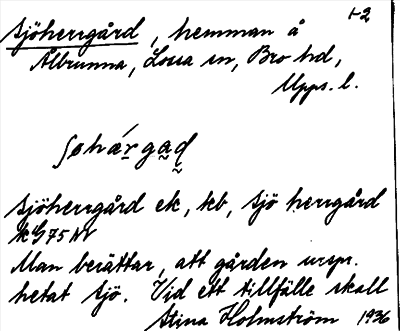 1-2
Sjöherrgård, hemman å
Ålbrunna, Lossa sn, Bro hd,
Upps. l.
ʃøhár̲ga̰d̰
Sjöherrgård ek, kb, Sjö herrgård
kG75 NV
Man berättar, att gården urspr.
hetat Sjö. Vid ett tillfälle skall
Stina Holmström 1936